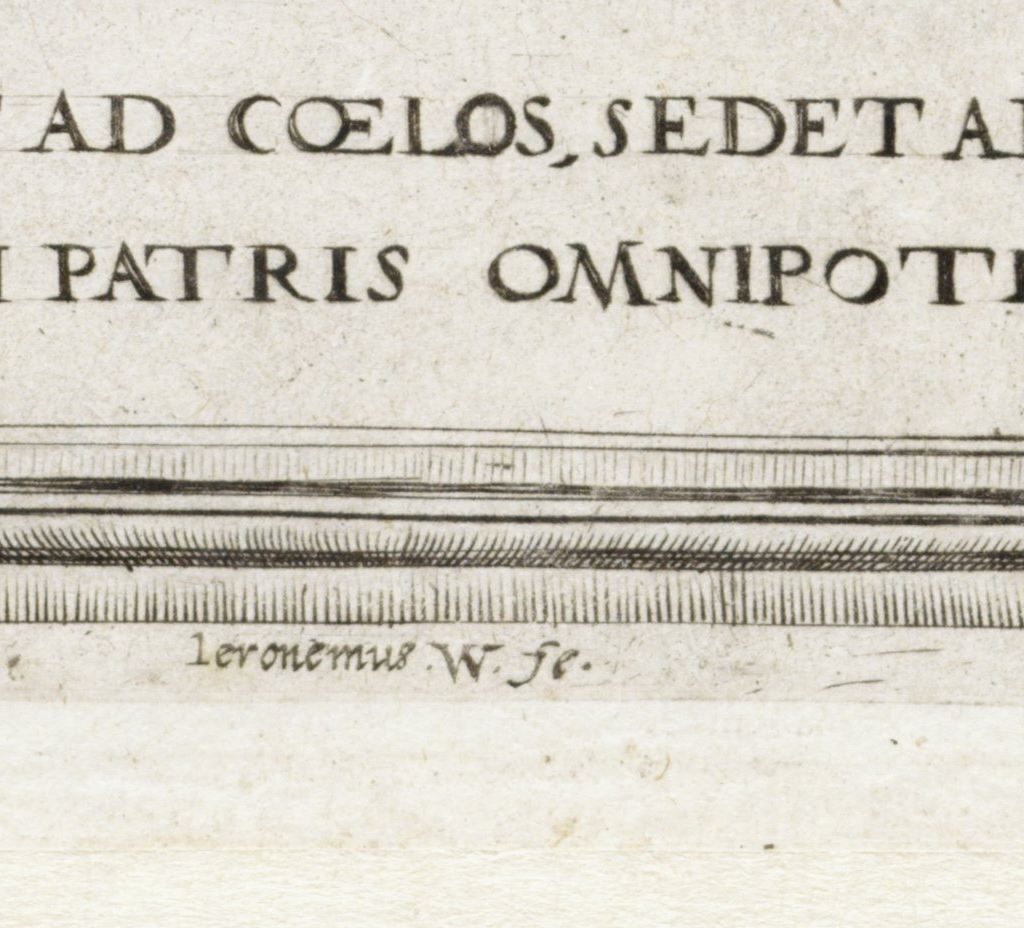 AD CŒLOS, SEDET A
PATRIS OMNIPOTE
Ieronemus .W. fe.